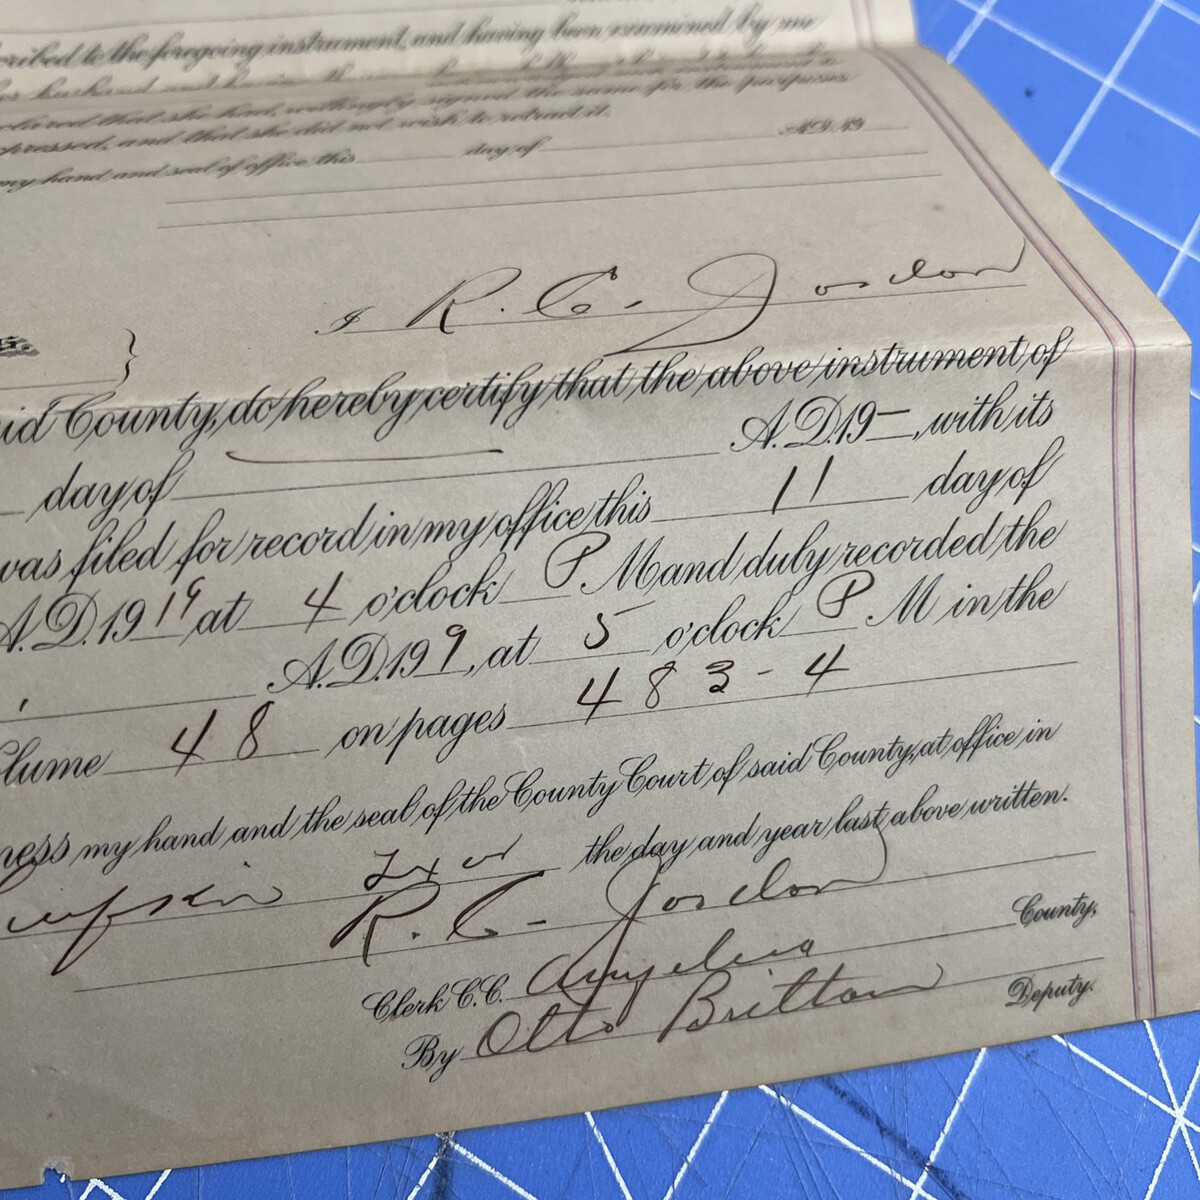 scribed to the foregoing instrument, and having been examined by me
her husband and having the
declared that she had willingly signed the same for the purposes
expressed, and that she did not wish to retract it.
my hand and seal of office this day of A.D. 19
I R. C. Jordon
aid County, do hereby certify that the above instrument of
day of A.D. 19—, with its
was filed for record in my office this 11 day of
A.D. 1919 at 4 o'clock P. M and duly recorded the
A.D. 199, at 5 o'clock P M in the
olume 48 on pages 483-4
ness my hand and the seal of the County Court of said County, at office in
ufkin Tex the day and year last above written.
R. C. Jordon
Clerk C. C. Angelina County,
By Otto Britton Deputy.